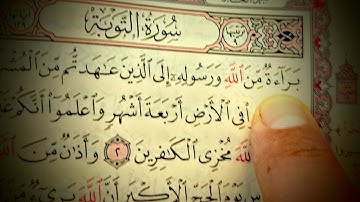 سُورَةُ التَّوْبَةِ
بَرَآءَةٌ مِّنَ ٱللَّهِ وَرَسُولِهِۦٓ إِلَى ٱلَّذِينَ عَـٰهَدتُّم مِّنَ
فِى ٱلْأَرْضِ أَرْبَعَةَ أَشْهُرٍ وَٱعْلَمُوٓا۟ أَنَّكُمْ
ٱللَّهَ مُخْزِى ٱلْكَـٰفِرِينَ ٢ وَأَذَٰنٌ مِّنَ
يَوْمَ ٱلْحَجِّ ٱلْأَكْبَرِ أَنَّ ٱللَّهَ بَرِىٓءٌ